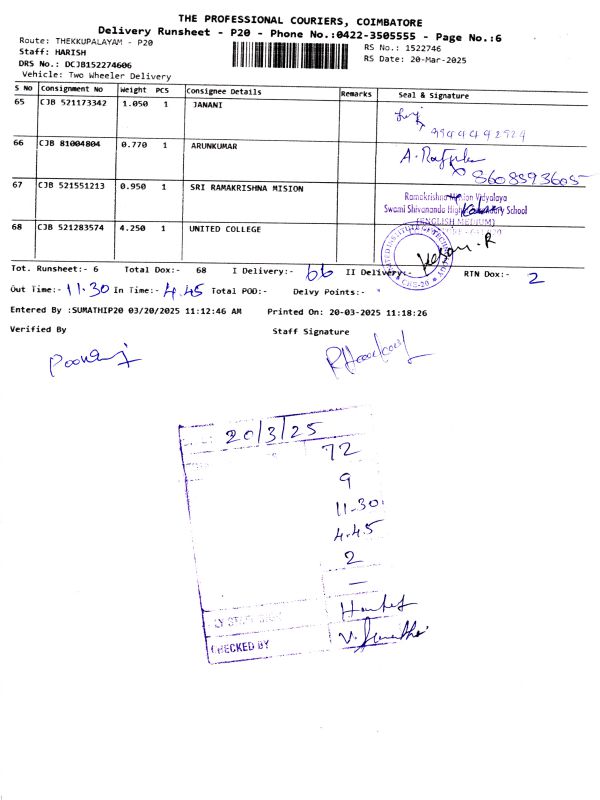 THE PROFESSIONAL COURIERS, COIMBATORE
Delivery Runsheet - P20 - Phone No.:0422-3505555 - Page No.:6
Route: THEKKUPALAYAM - P20
RS No.: 1522746
Staff: HARISH
RS Date: 20-Mar-2025
DRS No.: DCJB152274606
Vehicle: Two Wheeler Delivery
S NO Consignment No Weight PCS Consignee Details Remarks Seal & Signature
65 CJB 521173342 1.050 1 JANANI
9944492924
66 CJB 81004804 0.770 1 ARUNKUMAR
8608593605
67 CJB 521551213 0.950 1 SRI RAMAKRISHNA MISION
Ramakrishna Mission Vidyalaya
Swami Shivananda Higher Secondary School
(ENGLISH MEDIUM)
68 CJB 521283574 4.250 1 UNITED COLLEGE
Tot. Runsheet:- 6 Total Dox:- 68 I Delivery:- 66 II Delivery:- RTN Dox:- 2
Out Time:- 11.30 In Time:- 4.45 Total POD:- Delvy Points:-
Entered By :SUMATHIP20 03/20/2025 11:12:46 AM Printed On: 20-03-2025 11:18:26
Verified By Staff Signature
20/3/25
72
9
11-30.
4.45
2
—
CHECKED BY V. Sumathi